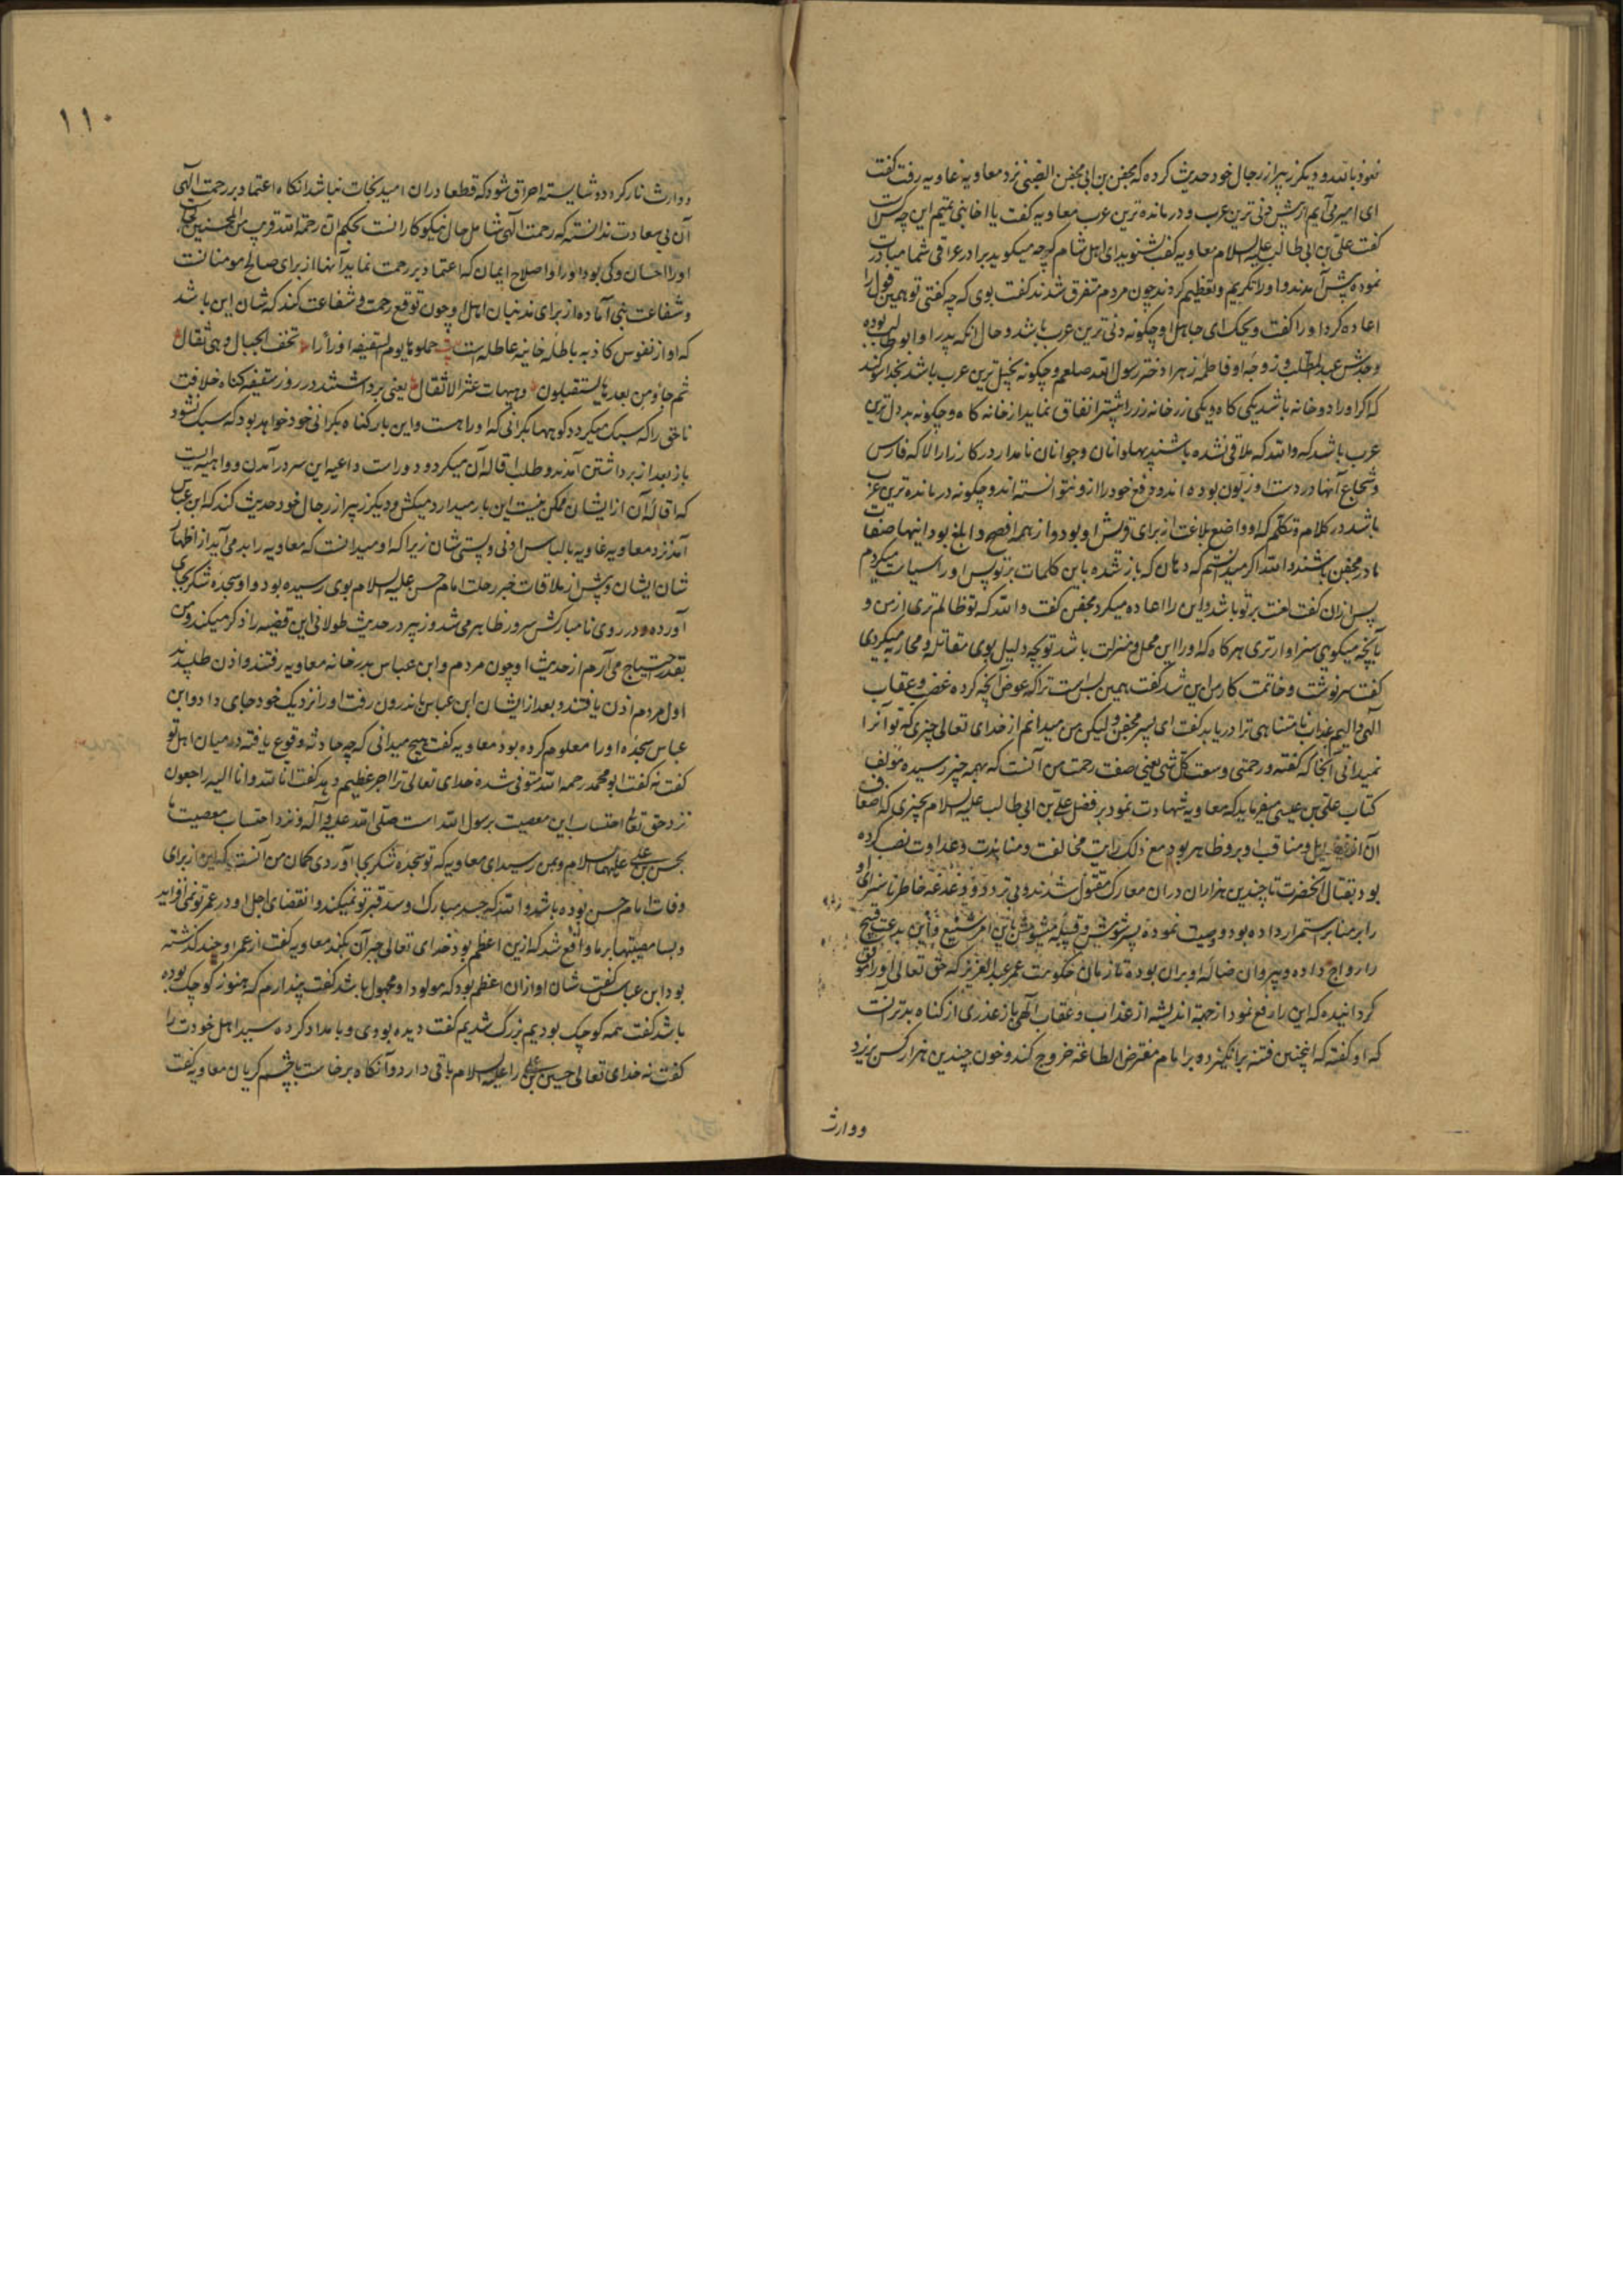 نعوذ بالله و دیکر زبیر از رجال خود حدیث کرده که محفن بن ابی محفن الضبی نزد معاویه غاویه رفت کفت
ای امیر می آیم از پیش دنی ترین عرب و درمانده ترین عرب معاویه کفت یا اخا بنی تمیم این چه کس است
کفت علی بن ابی طالب علیه السلام معاویه کفت بشنوید ای اهل شام که چه میکوید برادر عراقی شما مبادرت
نموده پیش آمدند و او را تکریم و تعظیم کردند چون مردم متفرق شدند کفت بوی که چه کفتی تو همین قول را
اعاده کرد او را کفت ویحک ای جاهل او چکونه دنی ترین عرب باشد و حال انکه پدر او ابو طالب بوده
و جدش عبد المطلب و زوجه او فاطمه زهرا دختر رسول الله صلعم و چکونه بخیل ترین عرب باشد بخدا سوکند
که اکر او را دو خانه باشد یکی کاه و یکی زر خانه زر را پیشتر انفاق نماید از خانه کاه و چکونه بددل ترین
عرب باشد که والله که ملاقی نشده باشند پهلوانان و جوانان نامدار در کارزار الا که فارس
و شجاع آنها در دست او زبون بوده اند و دفع خود را از و نتوانسته اند و چکونه درمانده ترین عرب
باشد در کلام و تکلم که او واضع بلاغت از برای قریش او بود و از همه افصح و ابلغ بود اینها صفات
مادر محفن باشند والله اکر میدانستم که دهان که باز شده باین کلمات برتو پس او را سیاست میکردم
پس ازان کفت لعنت برتو باشد و این را اعاده میکرد محفن کفت والله که تو ظالم تری از من و
بآنچه میکویی سزاوارتری هرکاه که او را این محل و منزلت باشد تو بچه دلیل بوی مقاتله و محاربه میکردی
کفت سرنوشت و خاتمت کار من این شد کفت همین بس است ترا که عوض آنچه کرده غضب و عقاب
الهی و الیم عذاب نامتناهی ترا دریابد کفت ای پسر محفن ولیکن من میدانم از خدای تعالی چیزی که تو آنرا
نمیدانی آنجا که کفته و رحمتی وسعت کل شی یعنی صفت رحمت من آنست که بهمه چیز رسیده مولف
کتاب علی بن عیسی میفرماید که معاویه شهادت نمود بر فضل علی بن ابی طالب علیه السلام بچیزی که اضعاف
آن از فضایل و مناقب او برو ظاهر بود مع ذلک رایت مخالفت و منابذت و عداوت نصب کرده
بود بقتال آنحضرت تا چندین هزاران دران معارک مقتول شدند و بی تردد و دغدغه خاطر ناسزای او
را بر منابر استمرار داده بود و وصیت نموده پسر شومش و قبیله میشومش باین امر شنیع و این بدعت قبیح
را رواج داده و پیروان ضاله او بران بوده تا زمان حکومت عمر عبد العزیز که حق تعالی او را موفق
کردانیده که این را رفع نمود از جهة اندیشه از عذاب و عقاب الهی باز عذری از کناه بدتر آنست
که او کفته که انچنین فتنه برانکیزد و بر امام مفترض الطاعة خروج کند و خون چندین هزار کس بریزد
ووارث
۱۱۰
ووارث نار کردد و شایسته احراق شود که قطعا دران امید نجات نباشد انکاه اعتماد بر رحمت الهی
آن بی سعادت ندانسته که رحمت الهی شامل حال نیکوکارانست بحکم ان رحمة الله قریب من المحسنین کجا
او را احسان و کی بود او را اصلاح ایمان که اعتماد بر رحمت نماید آنها از برای صالح مومنانست
و شفاعت بنی آماده از برای مذنبان اهل او چون توقع رحمت و شفاعت کند که شان این باشد
که او از نفوس کاذبه باطله خاینه عاطله است حملوها یوم السقیفه اوزارا تخف الجبال وهی ثقال
ثم جاؤ من بعدها یستقیلون وهیهات عثرا لا تقال یعنی برداشتند در روز سقیفه کناه خلافت
ناحق را که سبک میکردد کوهها بکرانی که او را هست و این بار کناه بکرانی خود خواهد بود که سبک نشود
باز بعد از برداشتن آمدند و طلب اقاله آن میکردند و دوراست داعیه این سر در آمدن و واهیه ایست
که اقاله آن از ایشان ممکن نیست این بار میدارد میکش و دیکر زبیر از رجال خود حدیث کند که ابن عباس
آمد نزد معاویه غاویه بالباس ادنی و پستی شان زیرا که او میدانست که معاویه را بد می آید از اظهار
شان ایشان و پیش از ملاقات خبر رحلت امام حسن علیه السلام بوی رسیده بود و او سجده شکر بجای
آورده و در روی نامبارکش سرور ظاهر می شد و زبیر در حدیث طولانی این قضیه را ذکر میکند و من
بقدر احتیاج می آرم از حدیث او چون مردم و ابن عباس بدرخانه معاویه رفتند و اذن طلبیدند
اول مردم اذن یافتند و بعد از ایشان ابن عباس باندرون رفت او را نزدیک خود جای داد و ابن
عباس سجده او را معلوم کرده بود معاویه کفت هیچ میدانی که چه حادثه وقوع یافته در میان اهل تو
کفت نه کفت ابو محمد رحمه الله متوفی شده خدای تعالی ترا اجر عظیم دهد کفت انا لله وانا الیه راجعون
نزد حق تعالی احتساب این مصیبت برسول الله است صلی الله علیه وآله و نزد احتساب مصیبت ما
بحسن بن علی علیهما السلام و بمن رسید ای معاویه که تو سجده شکر بجا آوردی کمان من آنست که این از برای
وفات امام حسن بوده باشد والله که جسد مبارک او سد قبر تو نمیکند و انقضای اجل او در عمر تو نمی افزاید
و بسا مصیبتها بر ما واقع شد که ازین اعظم بود خدای تعالی جبر آن بکند معاویه کفت از عمر او چند کذشته
بود ابن عباس کفت شان او ازان اعظم بود که مولود او مجهول باشد کفت پندارم که هنوز کوچک بوده
باشد کفت همه کوچک بودیم بزرک شدیم کفت دیده بودی و بامداد کرده سید اهل خودت را
کفت نه خدای تعالی حسین بن علی را علیه السلام باقی دارد و آنکاه برخاست با چشم کریان معاویه کفت